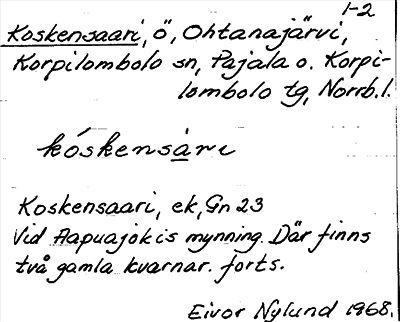 1-2
Koskensaari, ö, Ohtanajärvi,
Korpilombolo sn, Pajala o. Korpi-
lombolo tg, Norrb.l.
kóskensari
Koskensaari, ek, Gn 23
Vid Aapuajokis mynning. Där finns
två gamla kvarnar. forts.
Eivor Nylund 1968.